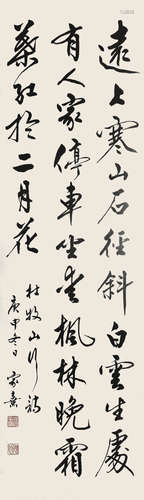 遠上寒山石徑斜白雲生處
有人家停車坐愛楓林晚霜
葉紅於二月花
杜牧山行詩
庚申冬日